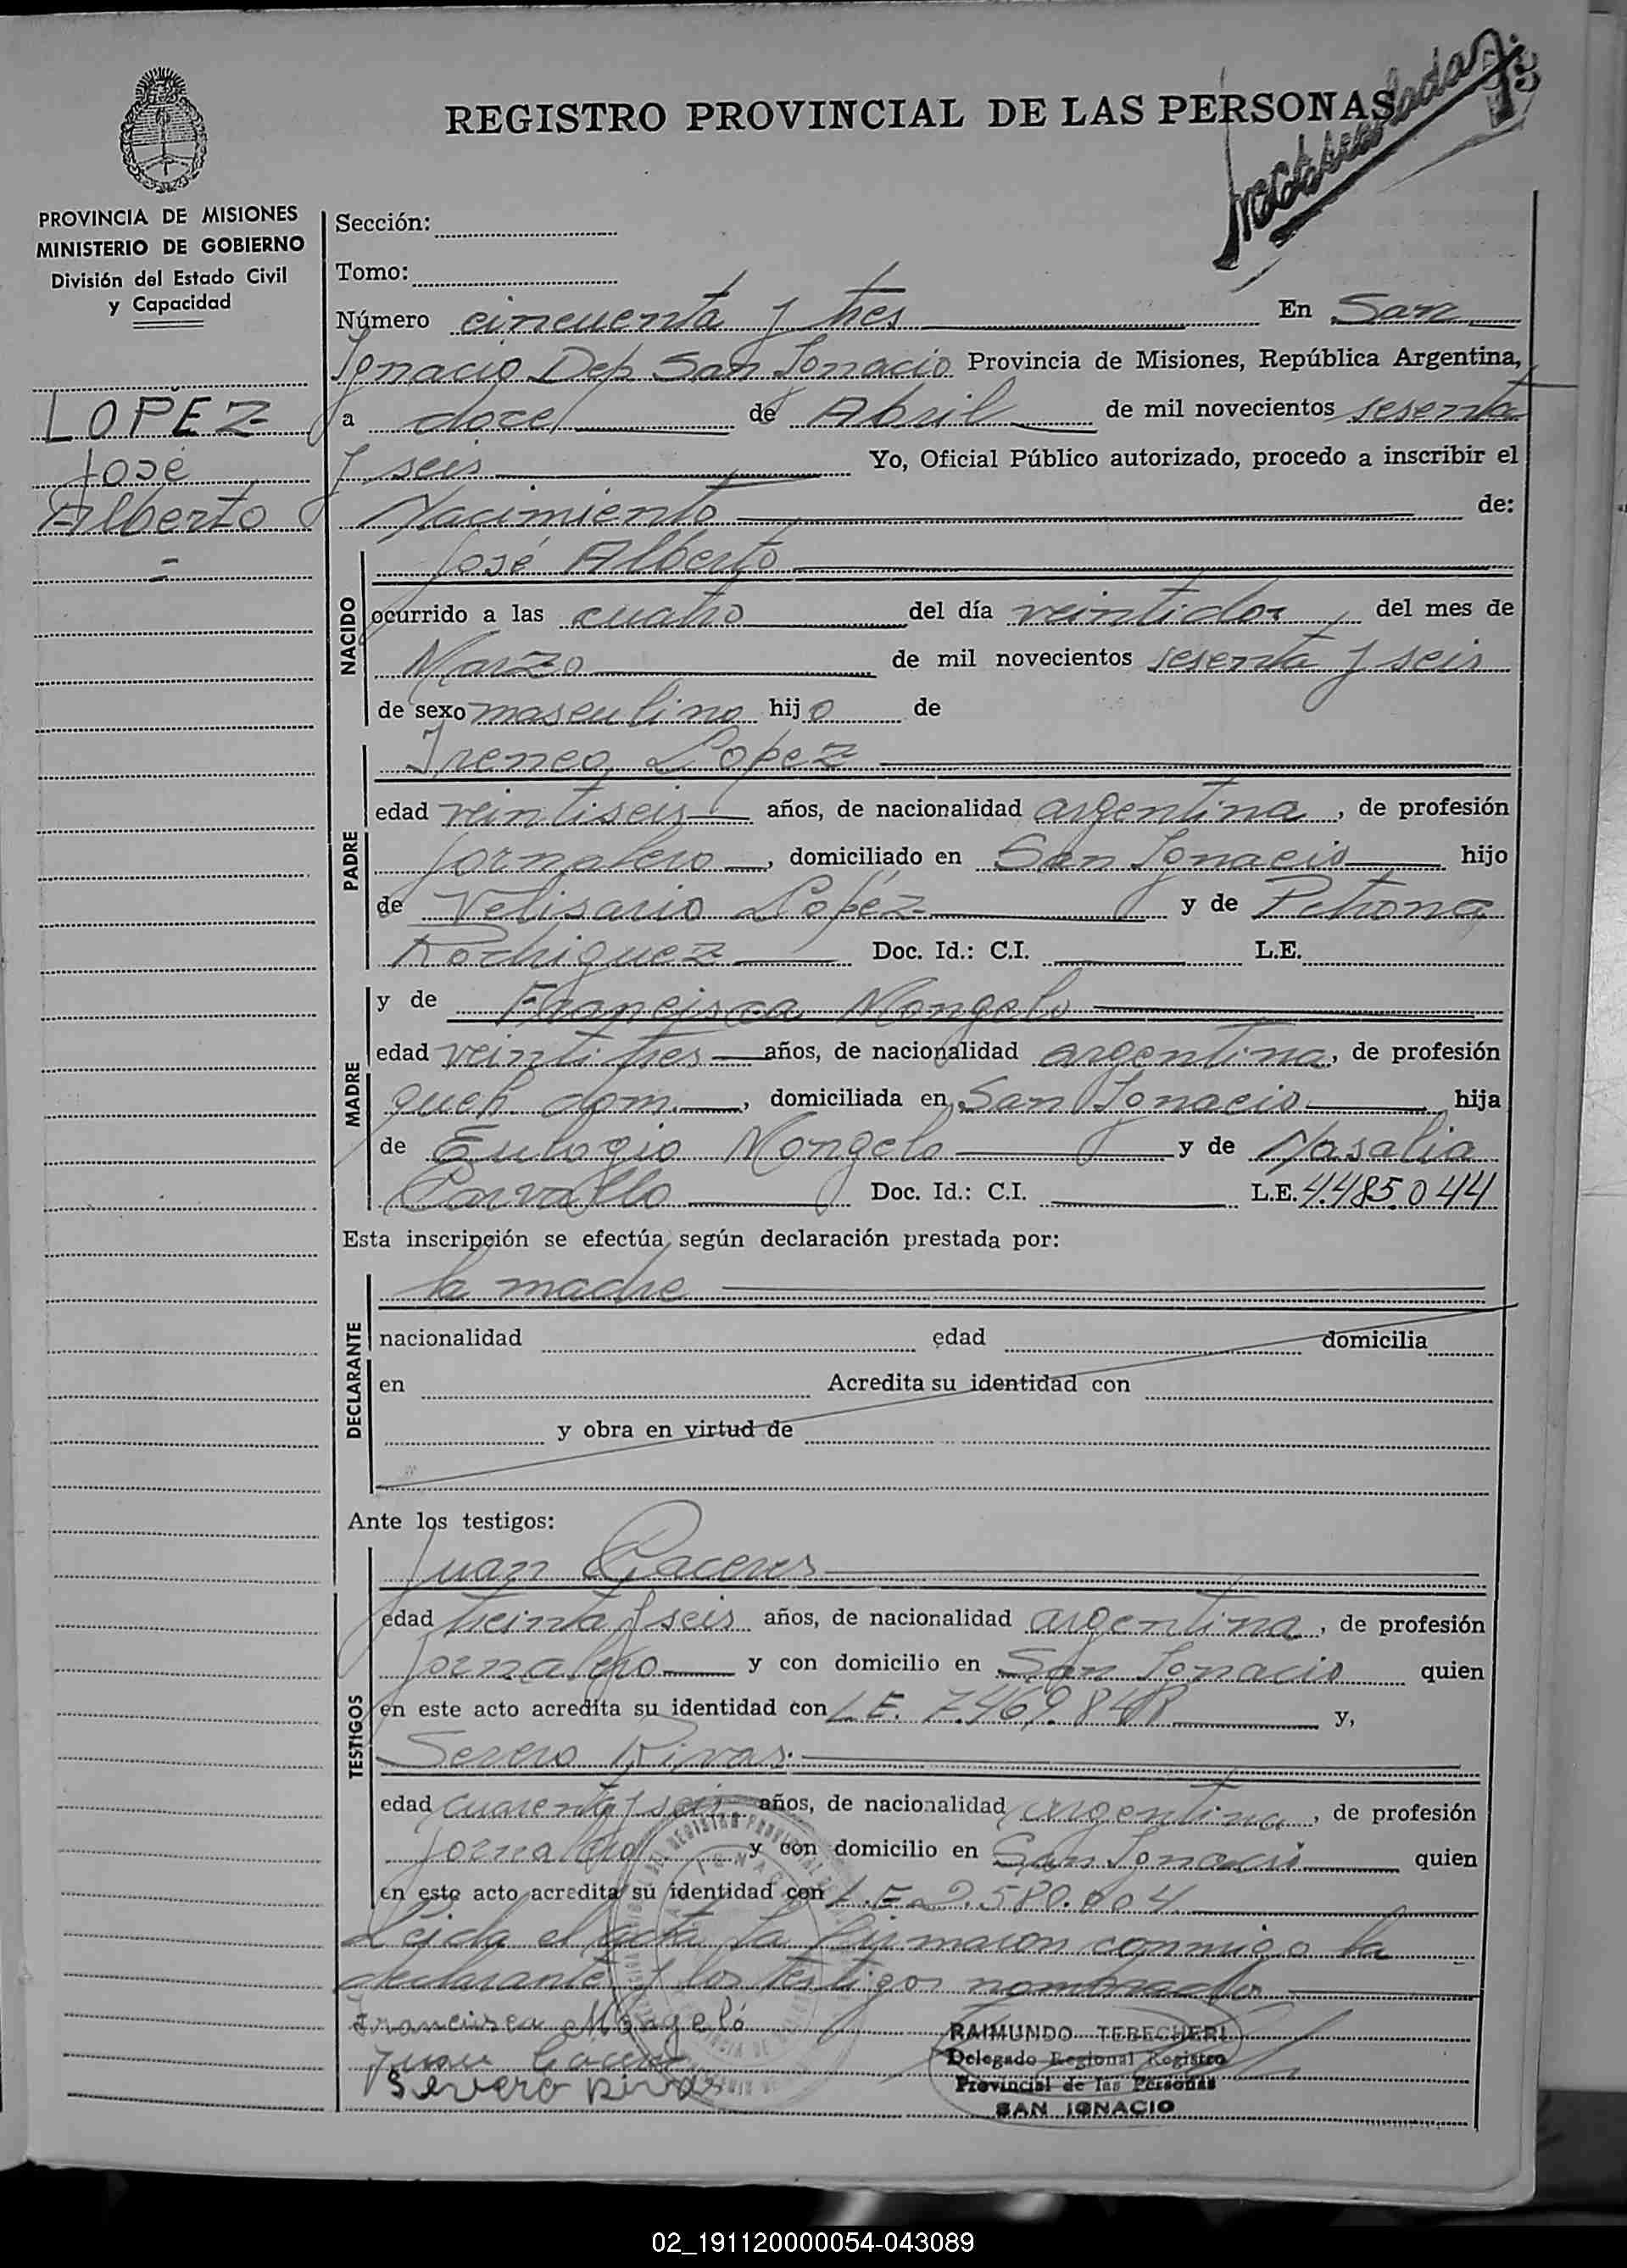 REGISTRO PROVINCIAL DE LAS PERSONAS
PROVINCIA DE MISIONES
MINISTERIO DE GOBIERNO
División del Estado Civil
y Capacidad
LOPEZ
José
Alberto
Sección:
Tomo:
Número cincuenta y tres En San
Ignacio Dep San Ignacio Provincia de Misiones, República Argentina,
a doce de Abril de mil novecientos sesenta
y seis Yo, Oficial Público autorizado, procedo a inscribir el
Nacimiento de:
NACIDO
José Alberto
ocurrido a las cuatro del día veintidos del mes de
Marzo de mil novecientos sesenta y seis
de sexo masculino hijo de
PADRE
Ireneo Lopez
edad veintiseis años, de nacionalidad argentina, de profesión
jornalero, domiciliado en San Ignacio hijo
de Velisario Lopéz y de Petrona
Rodriguez Doc. Id.: C.I. L.E.
MADRE
y de Francisca Mongelo
edad veinti tres años, de nacionalidad argentina, de profesión
queh. dom., domiciliada en San Ignacio hija
de Eulogio Mongelo y de
Carvallo Doc. Id.: C.I. L.E. 4.485.044
Esta inscripción se efectúa según declaración prestada por:
DECLARANTE
la madre
nacionalidad edad domicilia
en Acredita su identidad con
y obra en virtud de
Ante los testigos:
TESTIGOS
Juan Caceres
edad treinta y seis años, de nacionalidad argentina, de profesión
jornalero y con domicilio en San Ignacio quien
en este acto acredita su identidad con L.E. 7.469.848 y,
Severo Rivas
edad cuarenta y seis años, de nacionalidad argentina, de profesión
jornalero y con domicilio en San Ignacio quien
en este acto acredita su identidad con L.E. 2.580.004
Leida el acta la firmaron conmigo la
declarante y los testigos nombrados
Francisca Mongeló
Juan Caceres
Severo Rivas
RAIMUNDO TEBECHERI
Delegado Regional Registro
Provincial de las Personas
SAN IGNACIO
02_191120000054-043089